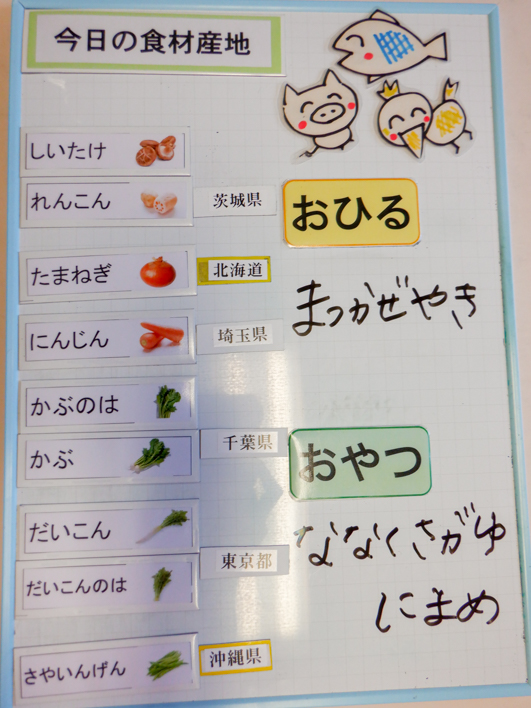 今日の食材産地
しいたけ
れんこん 茨城県
おひる
たまねぎ 北海道
まつかぜやき
にんじん 埼玉県
かぶのは
かぶ 千葉県
おやつ
だいこん
ななくさがゆ
だいこんのは 東京都
にまめ
さやいんげん 沖縄県